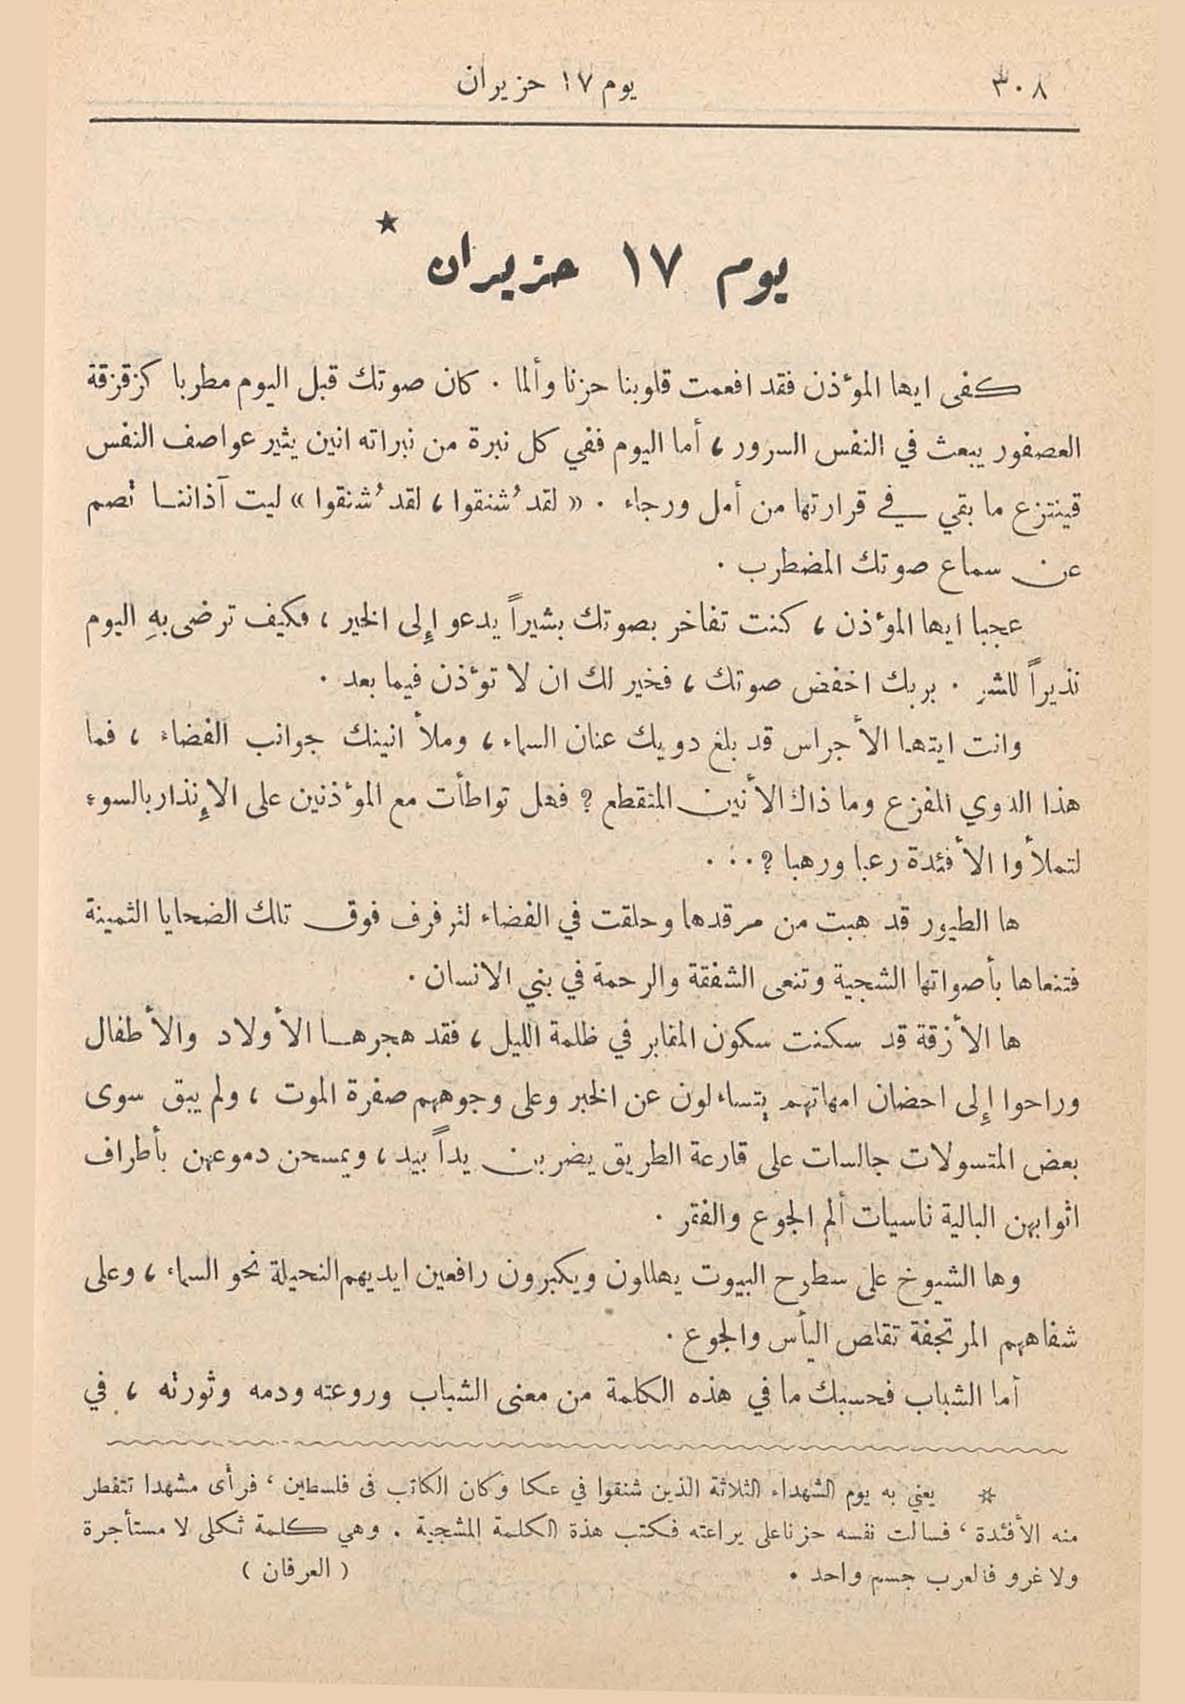 ٣٠٨ يوم ١٧ حزيران
يوم ١٧ حزيران ★
كفى ايها المؤذن فقد افعمت قلوبنا حزنا وألما . كان صوتك قبل اليوم مطربا كزقزقة
العصفور يبعث في النفس السرور ، أما اليوم ففي كل نبرة من نبراته انين يثير عواصف النفس
قينتزع ما بقي في قرارتها من أمل ورجاء . « لقد ُشنقوا ، لقد ُشنقوا » ليت آذاننا تصم
عن سماع صوتك المضطرب .
عجبا ايها المؤذن ، كنت تفاخر بصوتك بشيراً يدعو إِلى الخير ، فكيف ترضى بهِ اليوم
نذيراً للشر . بربك اخفض صوتك ، فخير لك ان لا تؤذن فيما بعد .
وانت ايتها الأجراس قد بلغ دويك عنان السماء ، وملأ انينك جوانب الفضاء ، فما
هذا الدوي المفزع وما ذاك الأنين المتقطع ? فهل تواطأت مع المؤذنين على الإِنذار بالسوء
لتملأوا الأفئدة رعبا ورهبا ? . . .
ها الطيور قد هبت من مرقدها وحلقت في الفضاء لترفرف فوق تلك الضحايا الثمينة
فتنعاها بأصواتها الشجية وتنعى الشفقة والرحمة في بني الانسان .
ها الأزقة قد سكنت سكون المقابر في ظلمة الليل ، فقد هجرها الأولاد والأطفال
وراحوا إِلى احضان امهاتهم يتساءلون عن الخبر وعلى وجوههم صفرة الموت ، ولم يبق سوى
بعض المتسولات جالسات على قارعة الطريق يضربن يداً بيد ، ويمسحن دموعهن بأطراف
اثوابهن البالية ناسيات ألم الجوع والفقر .
وها الشيوخ على سطوح البيوت يهللون ويكبرون رافعين ايديهم النحيلة نحو السماء ، وعلى
شفاههم المرتجفة تقلص اليأس والجوع .
أما الشباب فحسبك ما في هذه الكلمة من معنى الشباب وروعته ودمه وثورته ، في
* يعني به يوم الشهداء الثلاثة الذين شنقوا في عكا وكان الكاتب في فلسطين ، فرأى مشهدا تتفطر
منه الأفئدة ، فسالت نفسه حزنا على يراعته فكتب هذة الكلمة المشجية . وهي كلمة ثكلى لا مستأجرة
ولا غرو فالعرب جسم واحد . ( العرفان )